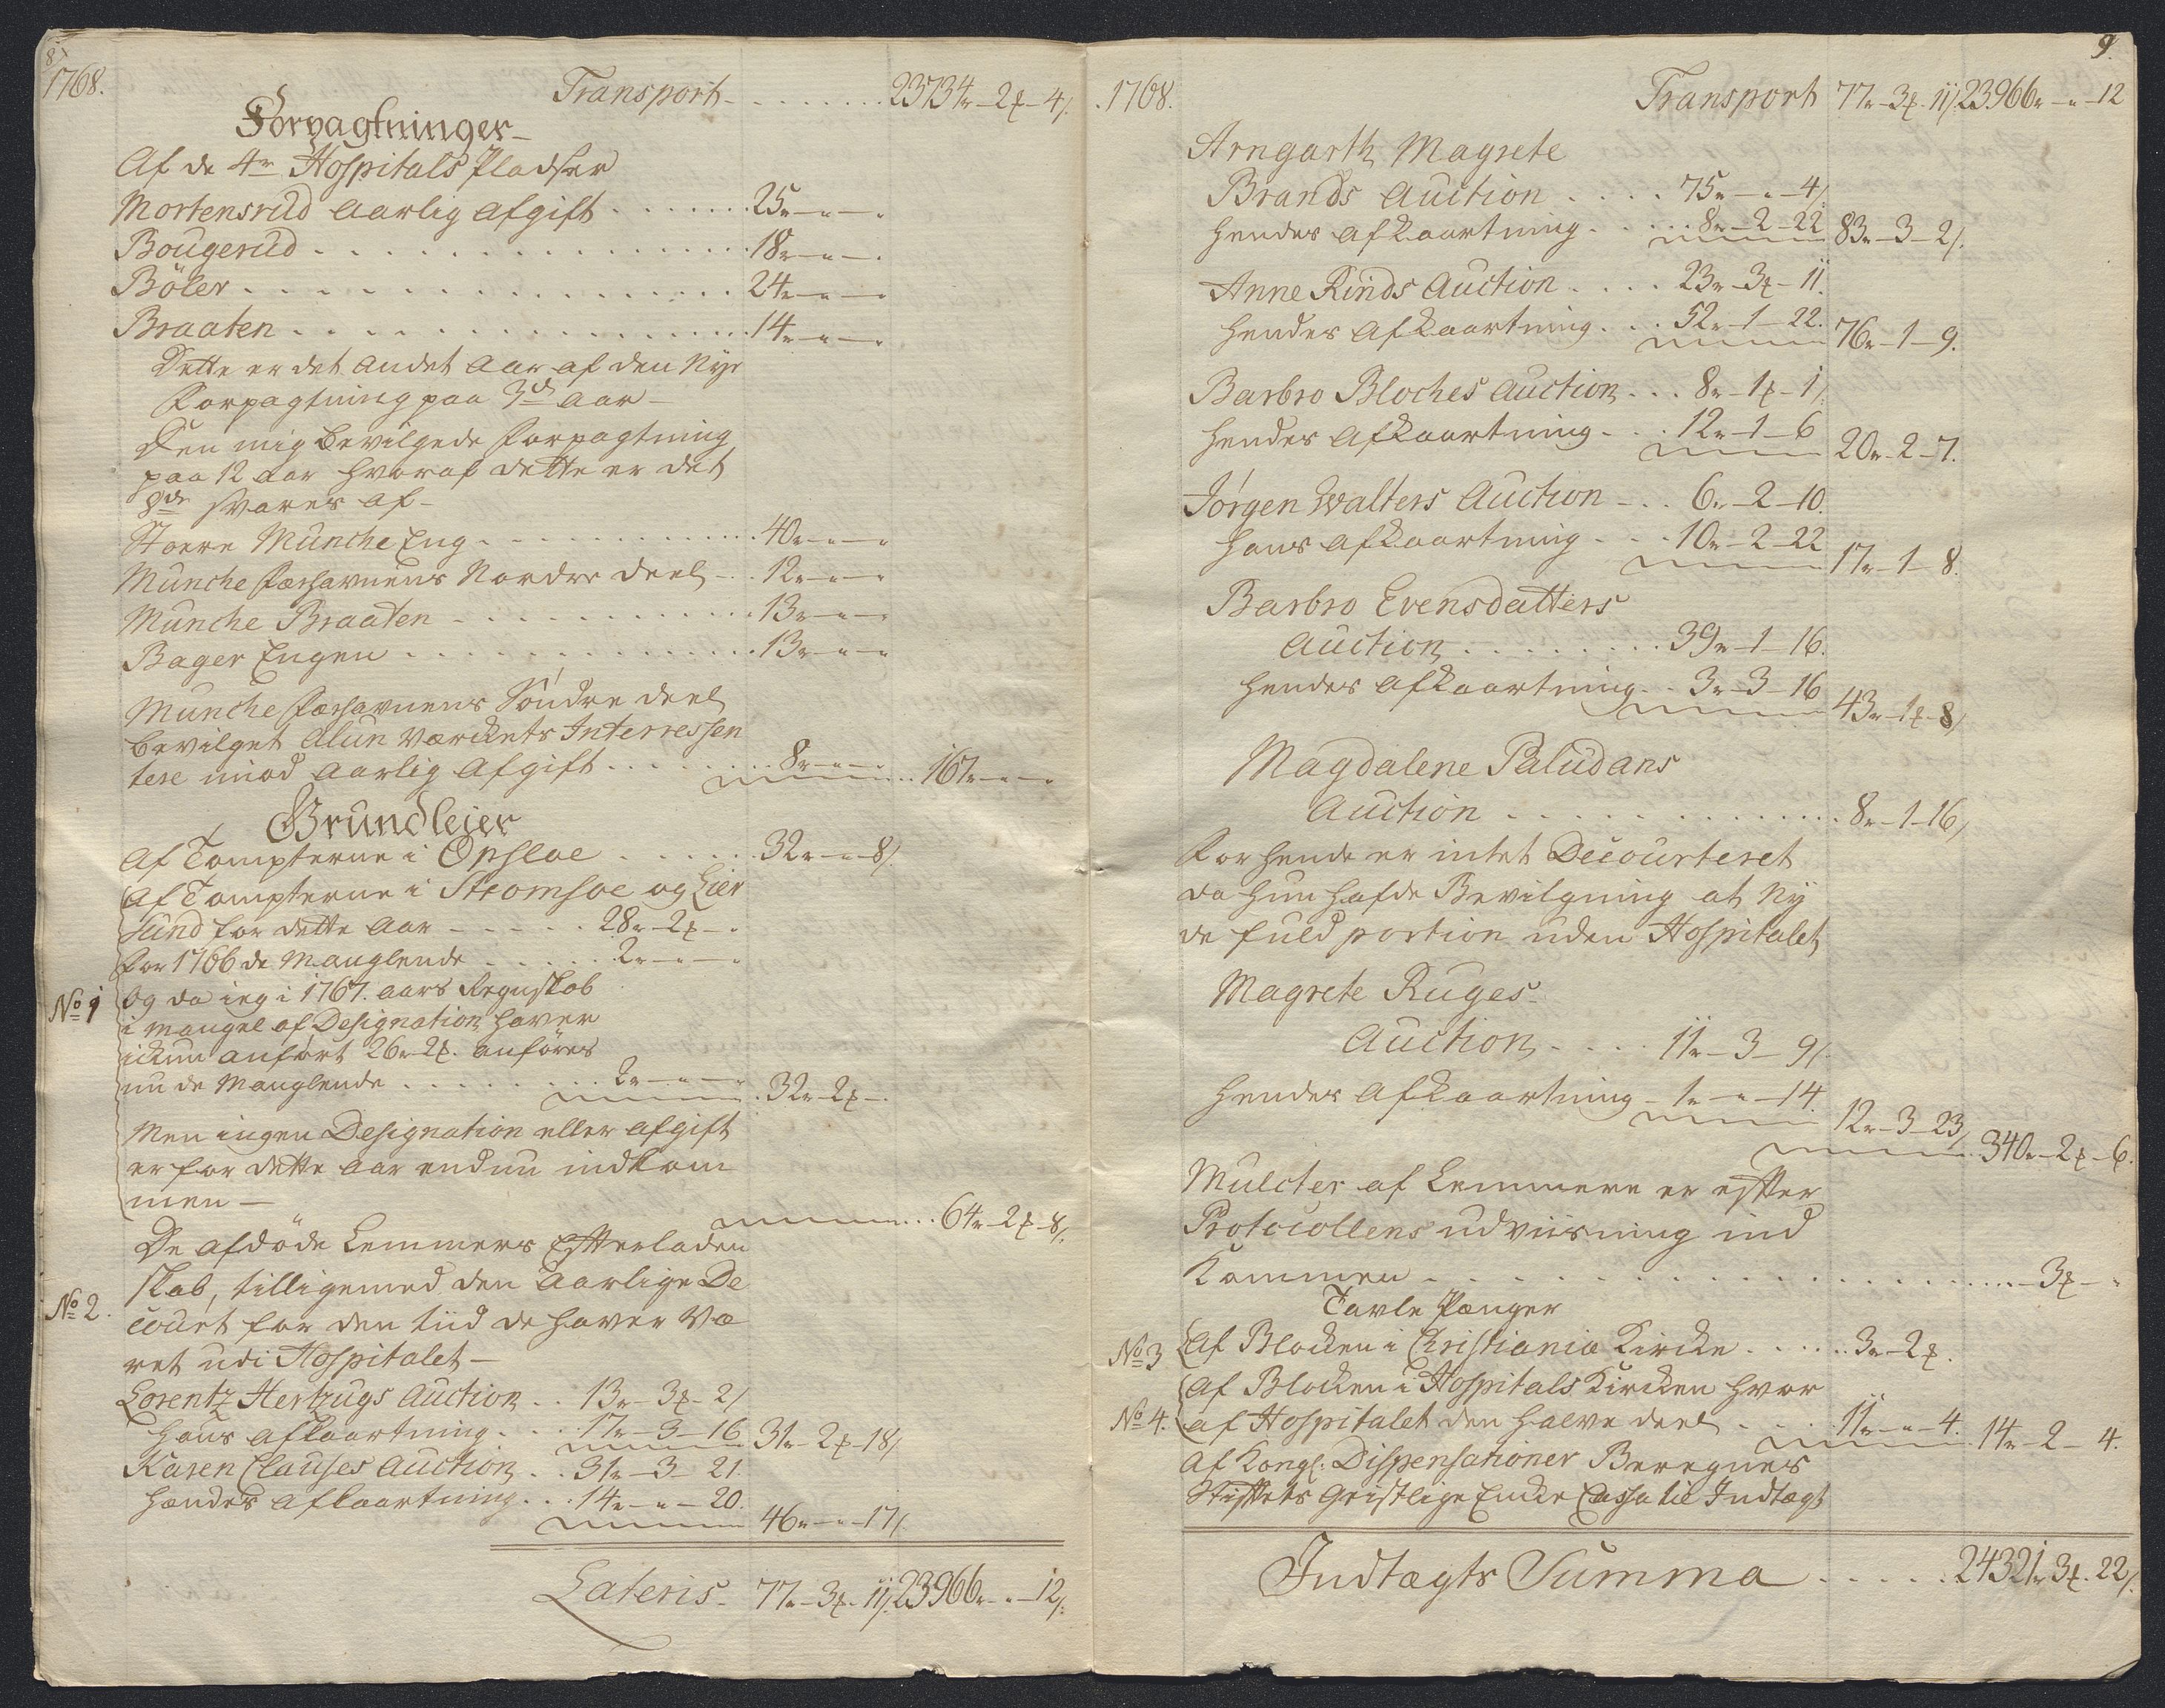 8
1768.
Transport - . . . . . . . 23734r - 2 ƶ - 4/.
Forpagtninger -
Af de 4re Hospitals Pladser
Mortensrud Aarlig Afgift . . . . . . . 25r - " - "
Bougerud . . . . . . . . . . . . . . 18r - " - "
Böler . . . . . . . . . . . . . . . . 24r - " - "
Braaten . . . . . . . . . . . . . . . 14r - " - "
Dette er det Andet Aar af den Nye
Forpagtning paa 3de Aar -
Den mig Bevilgede Forpagtning
paa 12 Aar hvoraf dette er det
8de svares af -
Stoere Munche Eng . . . . . . . . . . 40r - " - "
Munche Fæehavnens Nordre Deel - . . 12r - " - "
Munche Braaten . . . . . . . . . . . 13r - " - "
Bager Engen . . . . . . . . . . . . . 13r - " - "
Munche Fæehavnens Söndre Deel
Bevilget Alun Værckets Interressen
tere imod Aarlig Afgift . . . . . . . 8r - " - " . . 167r - " - "
Grundleier
Af Tompterne i Opsloe . . . . . . 32r - " - 8/.
Af Tompterne i Strömsoe og Lier
Sund for dette Aar - - - - . . 28r - 2 ƶ - "
For 1766 de Manglende . . . . . 2r - " - "
No 1 Og da ieg i 1767. Aars Regnskab
i Mangel af Designation haver
ickun anfört 26r 2 ƶ. anföres
nu de Manglende . . . . . . . . 2r - " - " . 32r - 2 ƶ - "
Men ingen Designation eller Afgift
er for dette Aar endnu indkom
men -
. . . 64r - 2 ƶ - 8/.
De afdöde Lemmers Efterladen
skab, tilligemed den Aarlige De
No 2. court for den tiid de haver Væ
ret udi Hospitalet -
Lorentz Hertzugs Auction . . 13r - 3 ƶ - 2/
hans afkaartning . . . 17r - 3 - 16 31r - 2 ƶ - 18/.
Karen Clauses Auction . . 31r - 3 - 21.
hendes Afkaartning . . . 14r - " - 20. 46r - " - 17/.
Lateris - 77r - 3 ƶ - 11/. 23966r - " - 12/.
9.
1768.
Transport 77r - 3 ƶ. 11/. 23966r - " - 12
Arngarth Magrete
Brands Auction . . . . 75r - " - 4/.
hendes afkaartning . . . . 8r - 2 - 22 83r - 3 - 2/.
Anne Rinds Auction . . . . 23r - 3 ƶ - 11.
hendes Afkaartning . . . 52r - 1 - 22. 76r - 1 - 9.
Barbro Bloches Auction . . . 8r - 1 ƶ - 1/.
hendes Afkaartning . . . 12r - 1 - 6 20r - 2 - 7.
Jörgen Walters Auction - . . 6r - 2 - 10.
hans afkaartning . . . 10r - 2 - 22 17r - 1 - 8.
Barbro Evensdatters
Auction . . . . . . . . 39r - 1 - 16.
hendes Afkaartning . . 3r - 3 - 16 43r - 1 ƶ - 8/
Magdalene Paludans
Auction . . . . . . . . . . . . . . . 8r - 1 - 16/
For hende er intet Decourteret
da hun hafde Bevilgning at Ny
de fuld portion uden Hospitalet
Magrete Ruges
Auction - . . . 11r - 3 - 9/.
hendes Afkaartning - 1r - " - 14. 12r - 3 - 23/
. . . 340r - 2 ƶ - 6.
Mulcter af Lemmerne er efter
Protocollens udviisning ind
Kommen . . . . . . . . . . . . . . . . . . - 3 ƶ - "
Tavle Pænger
No 3 Af Blocken i Christiania Kircke . . . . . 3r - 2 ƶ.
Af Blocken i Hospitals Kircken hvor
No 4. af Hospitalet den halve deel . . . . 11r - " - 4. 14r - 2 - 4.
Af Kongl. Dispensationer Beregnes
Stiftets Geistlige Encke Cassa til Indtægt
Indtægts Summa . . . . . 24321r 3 ƶ. 22/.